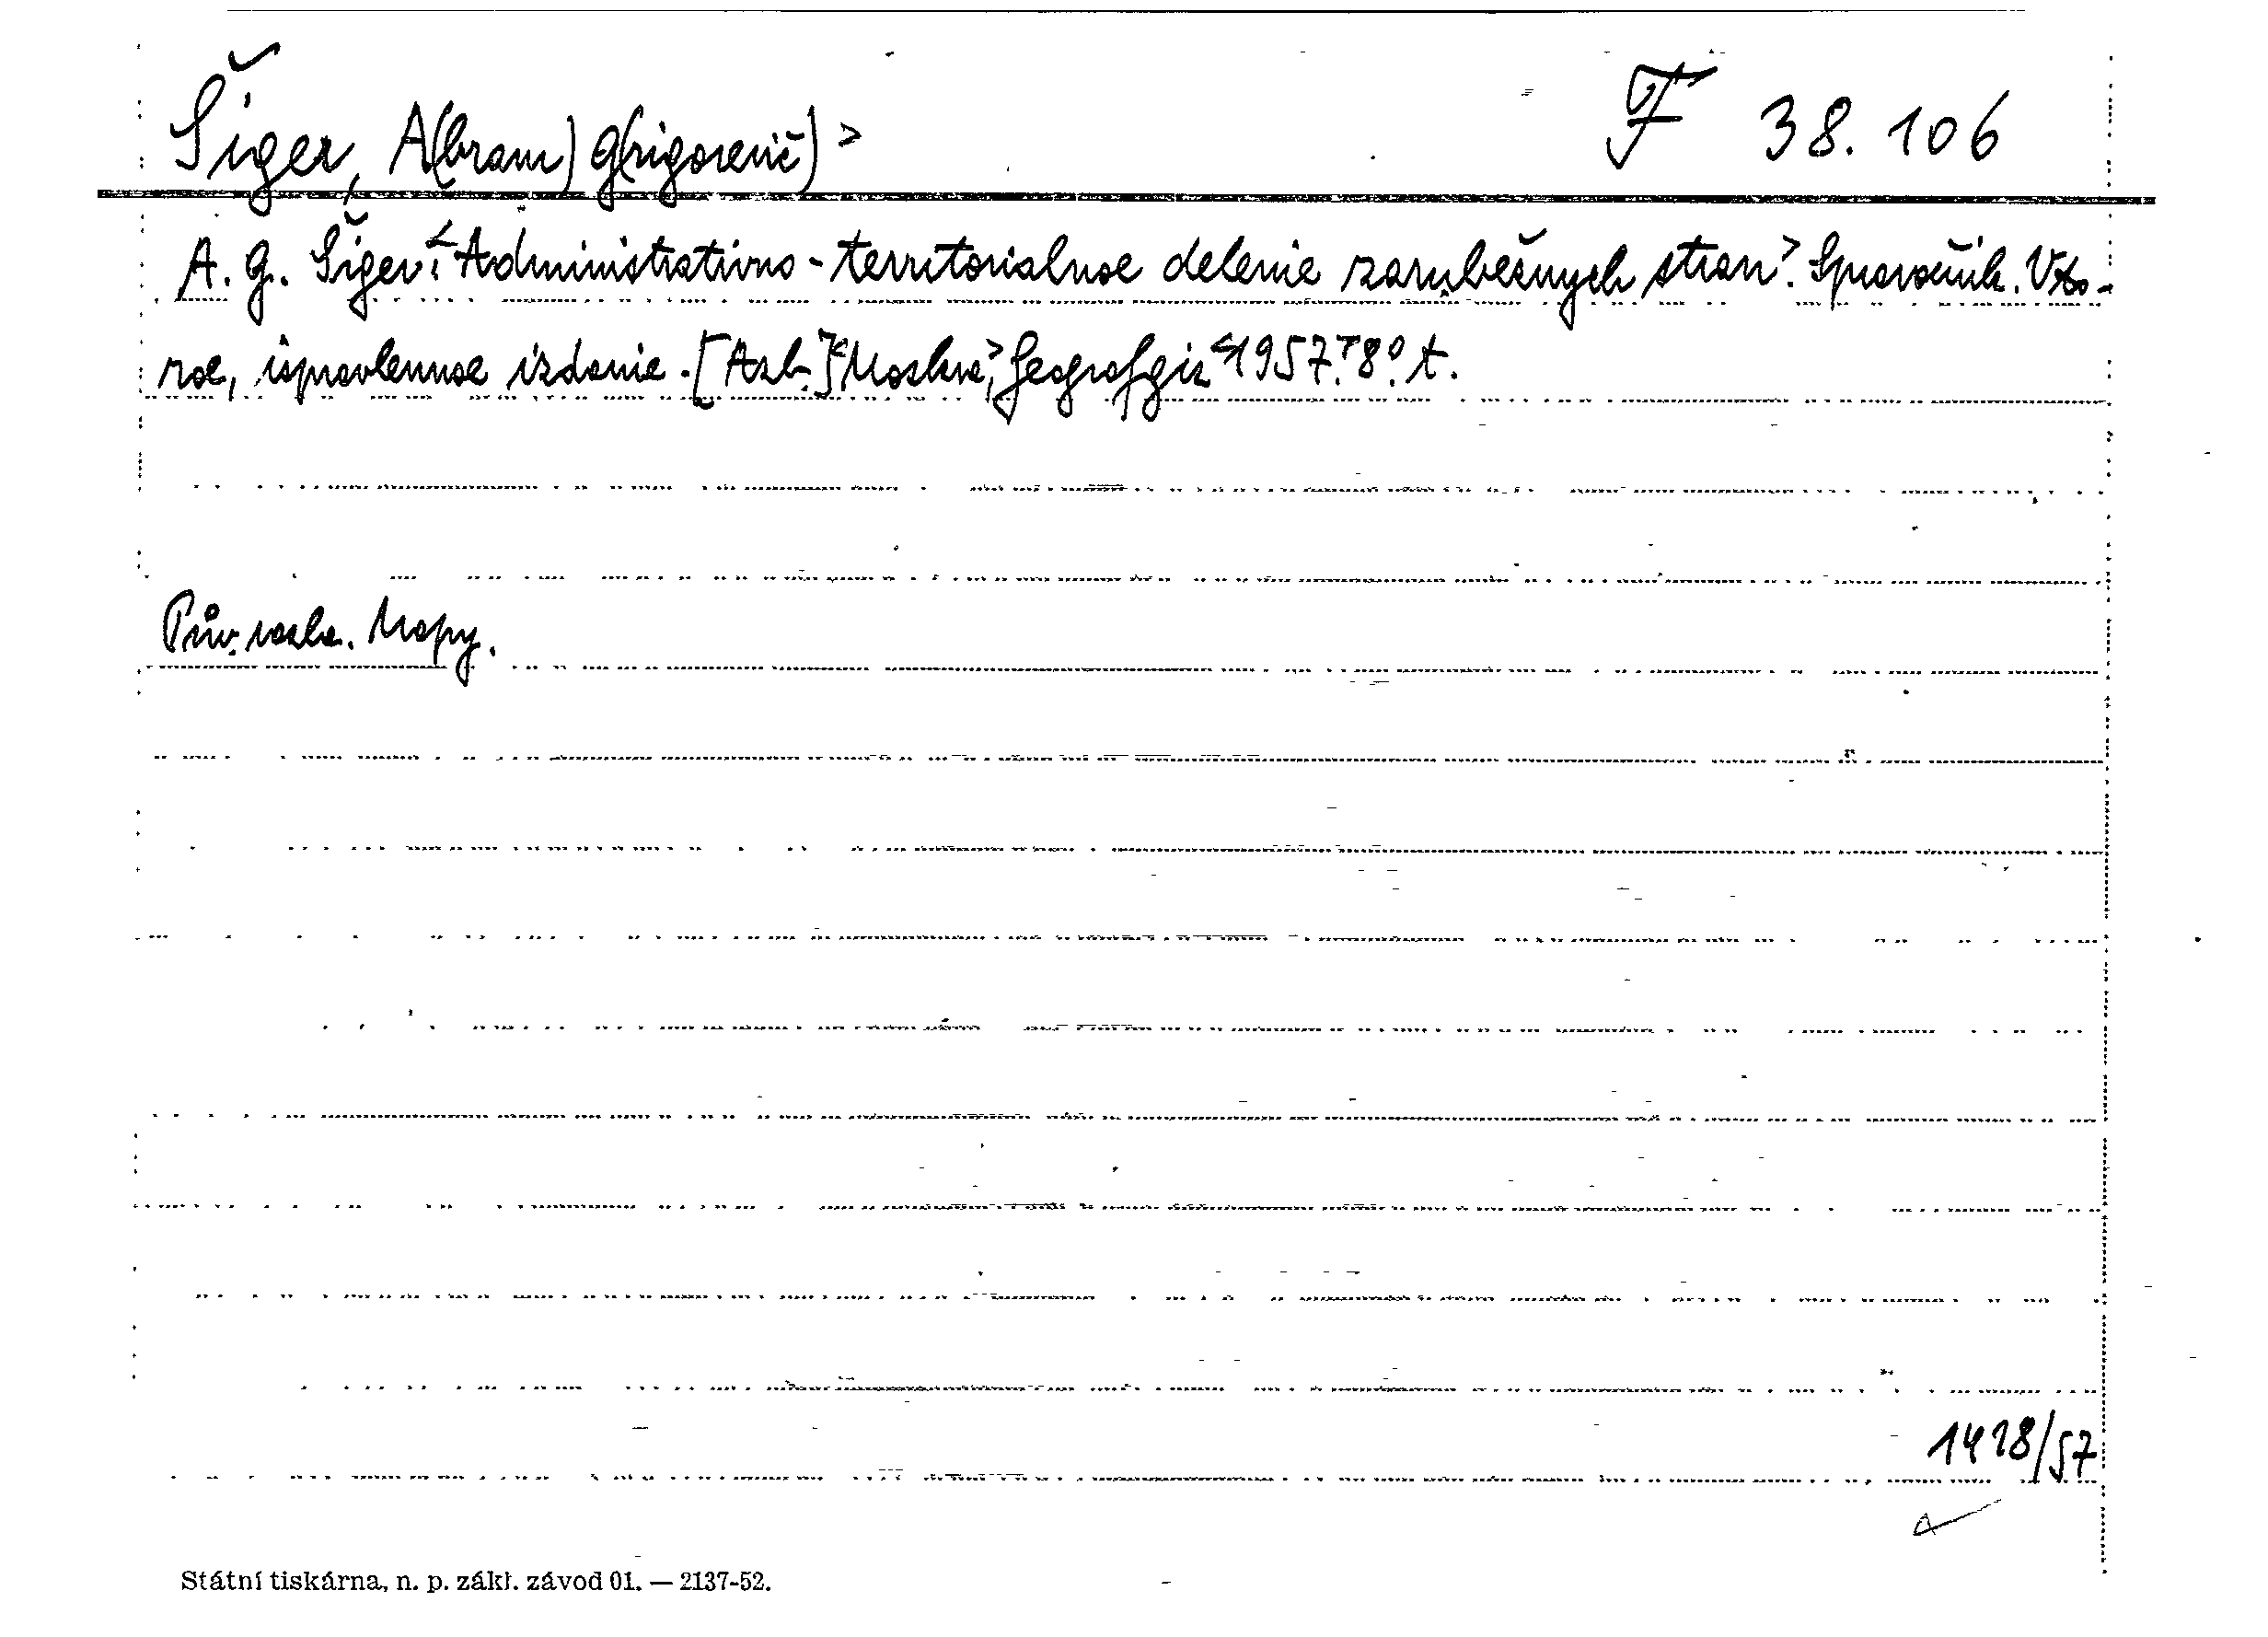 Šiger, A(bram) G(rigorevič)>
F 38.106
A. G. Šiger:<Administrativno-territorialnoe delenie zarubežnych stran>. Spravočnik. Vto-
roe, ispravlennoe izdanie. [Azb.] <Moskva>, Geografgiz <1957.> 8°. t.
Pův. vazba. Mapy.
1428/57
Státní tiskárna, n. p. zákl. závod 01. — 2137-52.